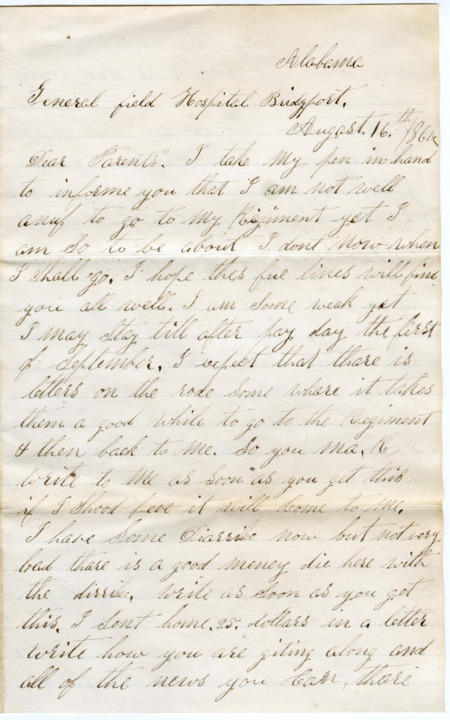 Alabama
General field Hospital Bridgport.
August. 16.th 1864
Dear Parents. I take my pen in hand
to informe you that I am not well
anuf to go to my Regiment yet I
am so to be about I dont now when
I shall go. I hope thes fue lines will find
you all well. I am some weak yet
I may stay till after pay day the first
of September. I expect that there is
letters on the rode some where it takes
them a good while to go to the Regiment
& then back to me. So you ma
write to me as soon as you get this
if I shood leve it will come to me.
I have some Diarrihe now but not very
bad there is a good meney die here with
the dirrihe. write as soon as you get
this. I sent home 25. dollars in a letter
write how you are giting along and
all of the news you can, there